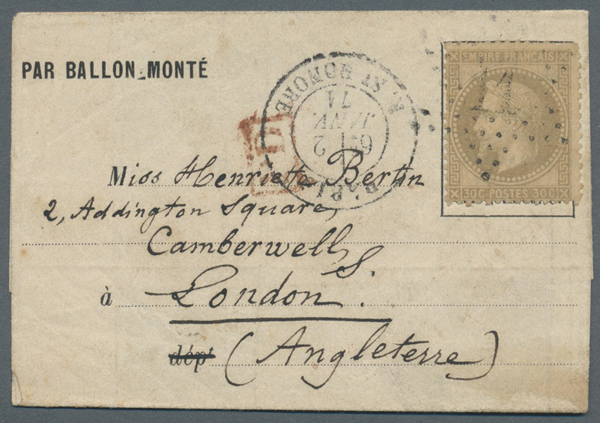 PAR BALLON MONTÉ
EMPIRE FRANÇAIS
30C POSTES 30C
PARIS R. ST HONORE
2
JANV.
71
PD
Miss Henriette Bertin
2, Addington Square,
Camberwell S.
à London.
dépt (Angleterre)